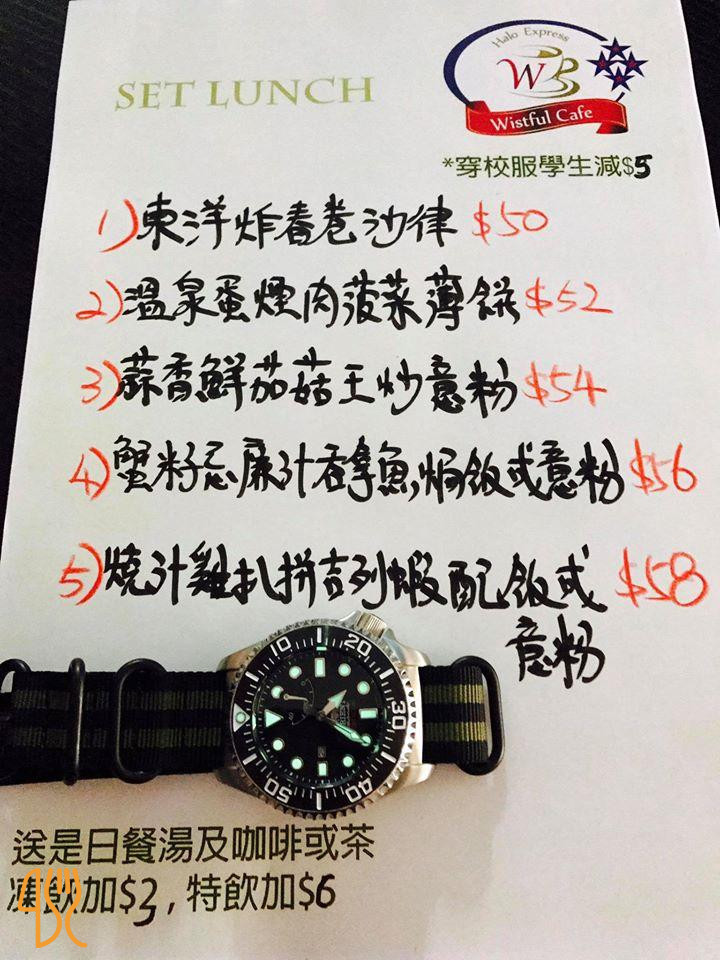 Halo Express
W
Wistful Cafe
SET LUNCH
*穿校服學生減$5
1)東洋炸春卷沙律 $50
2)溫泉蛋煙肉菠菜薄餅 $52
3)蒜香鮮茄菇王炒意粉 $54
4)蟹籽忌廉汁吞拿魚焗飯或意粉 $56
5)燒汁雞扒拼吉列蝦配飯或 $58
意粉
10
20
30
40
50
送是日餐湯及咖啡或茶
凍飲加$3,特飲加$6